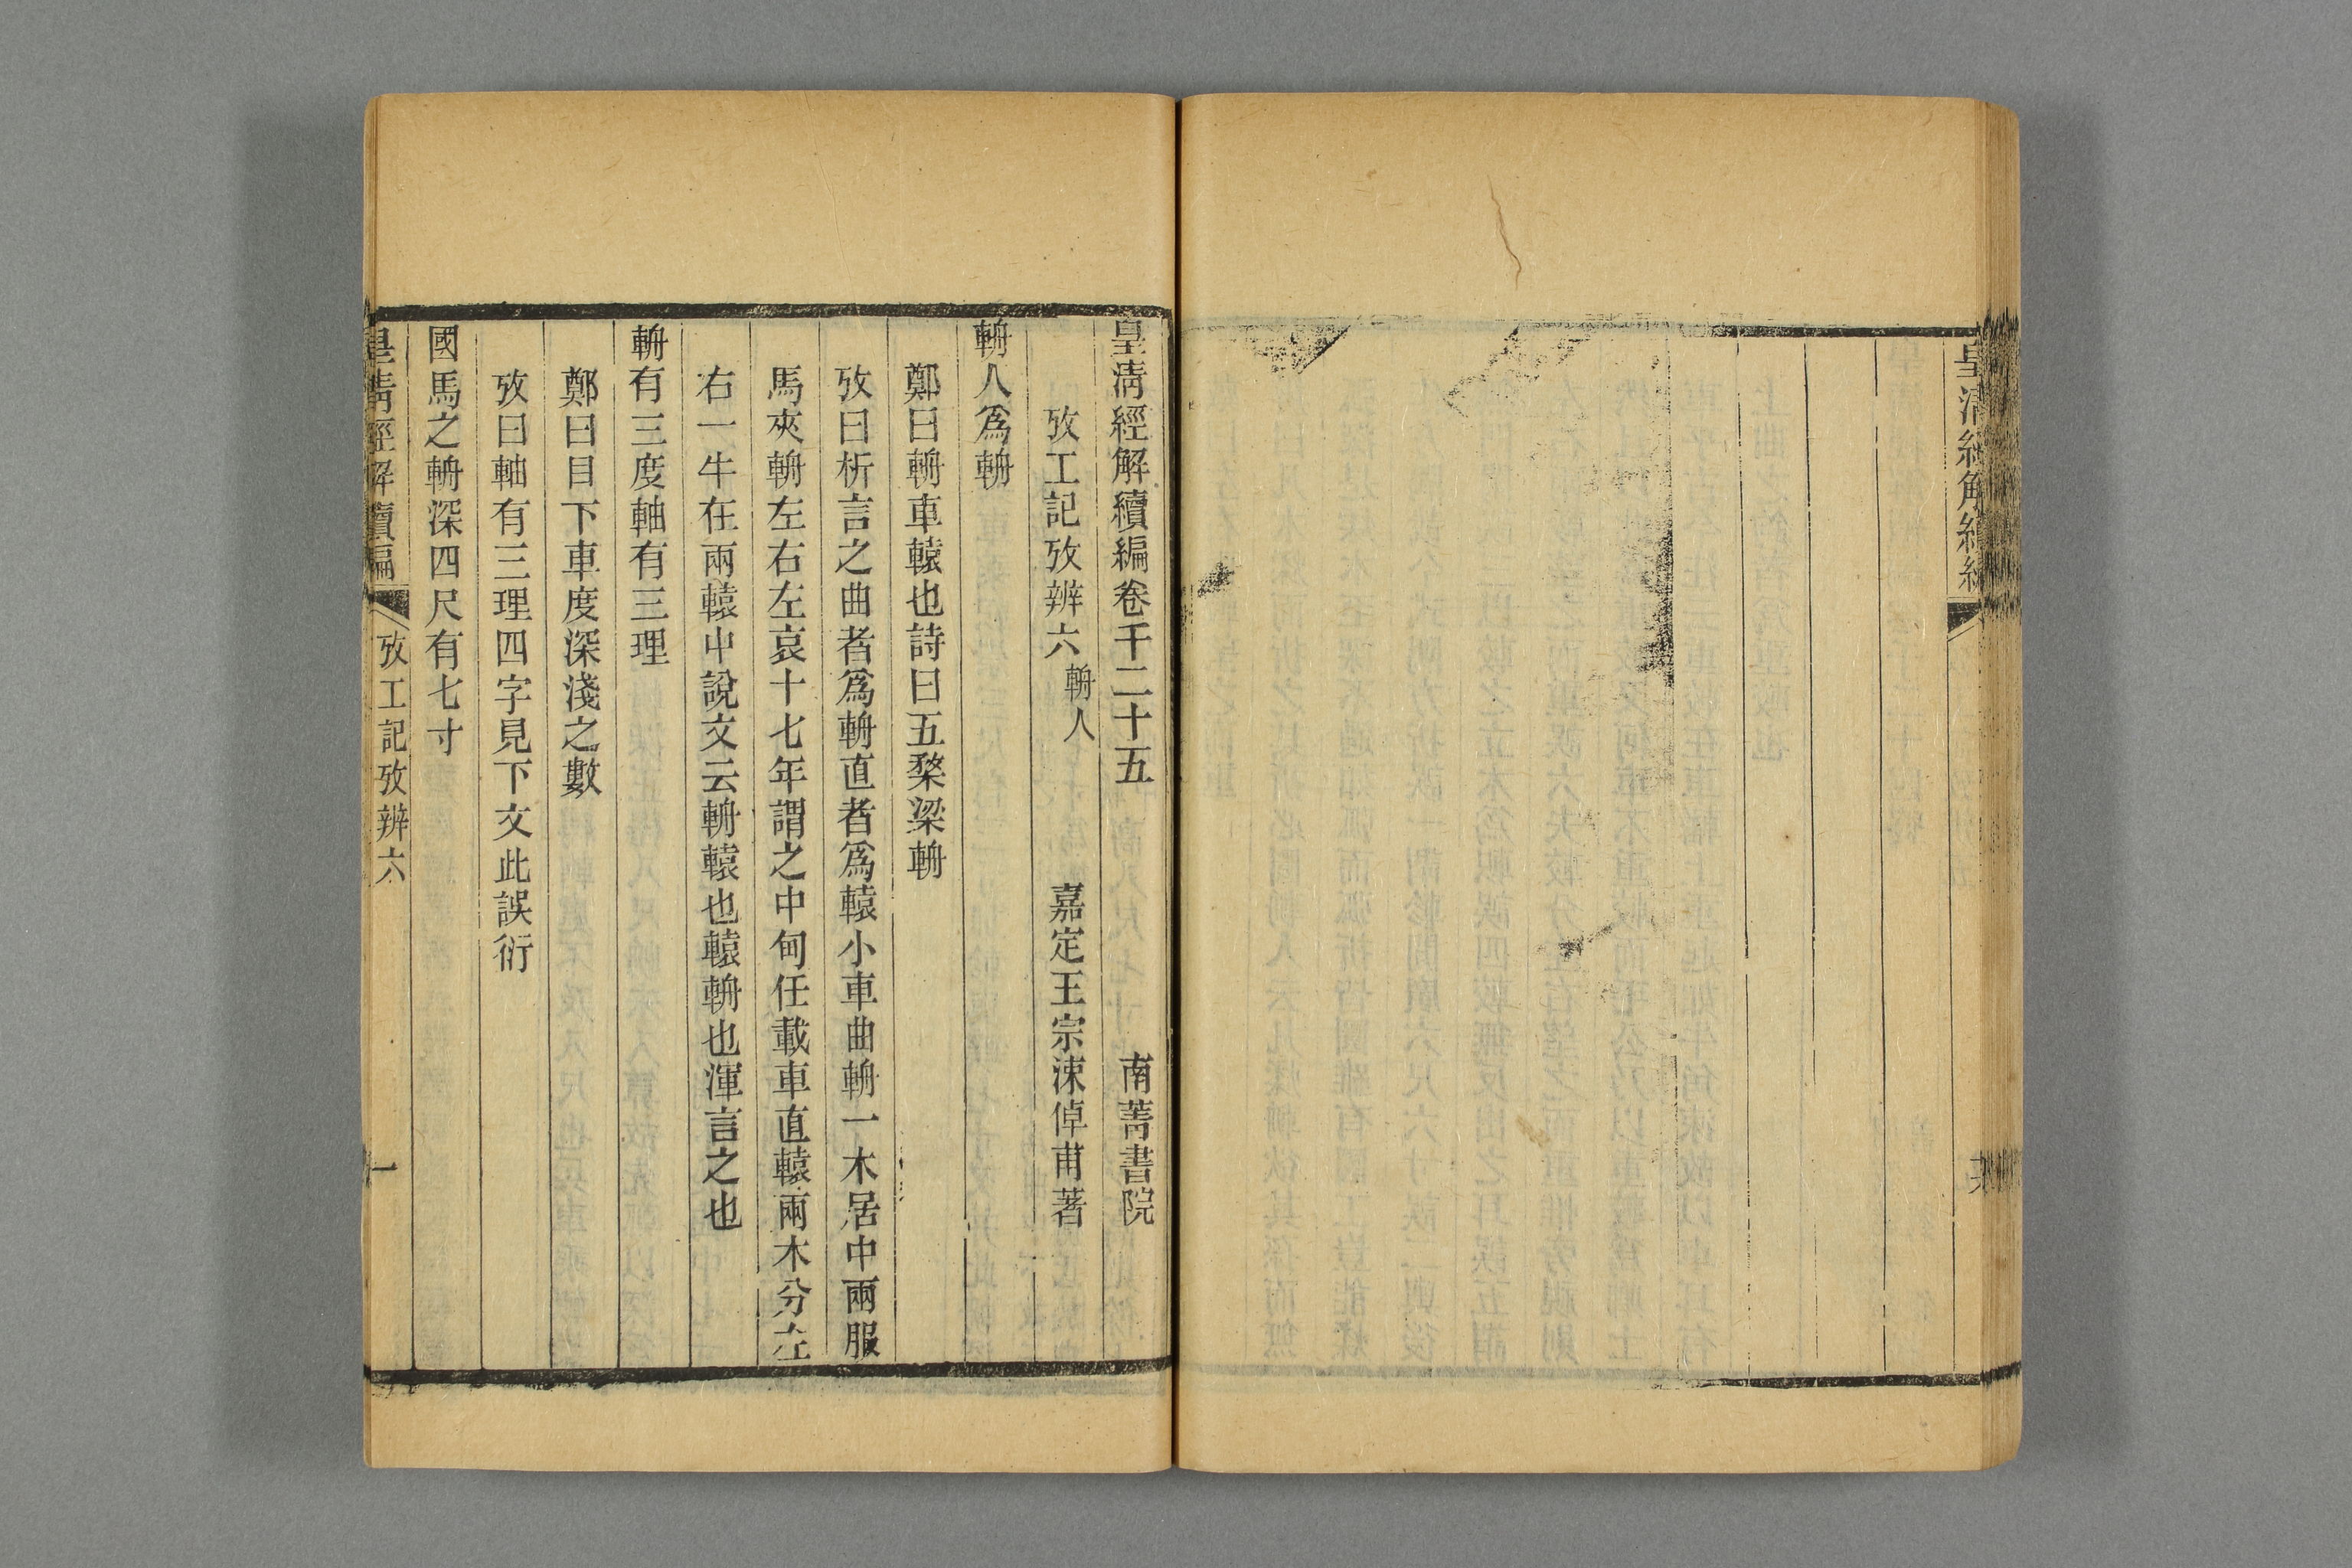 皇清經解續編
皇清經解續編卷千二十五 南菁書院
攷工記攷辨六 輈人 嘉定王宗涑倬甫著
輈人爲輈
鄭曰輈車轅也詩曰五楘梁輈
攷曰析言之曲者爲輈直者爲轅小車曲輈一木居中兩服
馬夾輈左右左哀十七年謂之中甸任載車直轅兩木分左
右一牛在兩轅中說文云輈轅也轅輈也渾言之也
輈有三度軸有三理
鄭曰目下車度深淺之數
攷曰軸有三理四字見下文此誤衍
國馬之輈深四尺有七寸
皇清經解續編 攷工記攷辨六 一